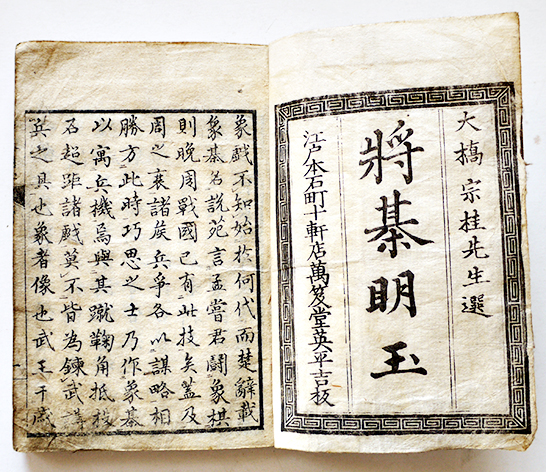 大橋 宗桂先生選
將棊明玉
江戸本石町十軒店萬笈堂英平吉板
象戲不知始於何代而楚辭載
象棊名說苑言孟嘗君鬪象棋
則晚周戰國已有此技矣蓋及
周之衰諸侯兵爭各以謀略相
勝方此時巧思之士乃作象棊
以寓兵機焉與其蹴鞠角抵投
石超距諸戲莫不皆為鍊武講
兵之具也象者像也武王干戚